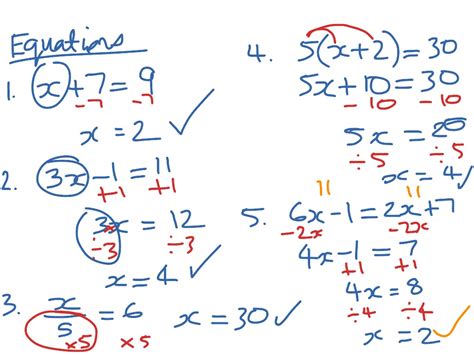 Equations
1. x+7=9
-7 -7
x=2 ✓
2. 3x-1=11
+1 +1
3x=12
÷3 ÷3
x=4 ✓
3. x/5=6
×5 ×5
x=30 ✓
4. 5(x+2)=30
5x+10=30
-10 -10
5x=20
÷5 ÷5
x=4 ✓
11 11
5. 6x-1=2x+7
-2x -2x
4x-1=7
+1 +1
4x=8
÷4 ÷4
x=2 ✓